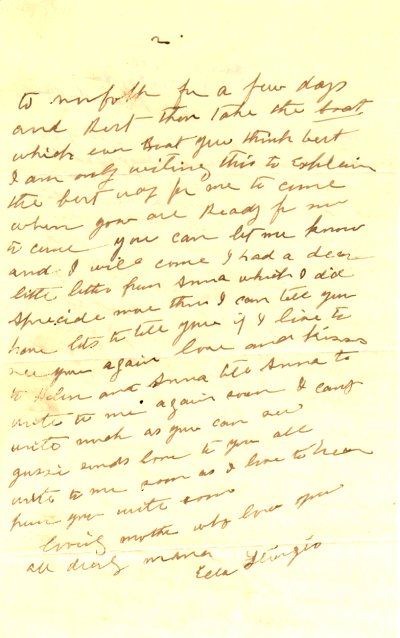 2.
to norfolk for a few days
and Rest then take the boat
which ever Boat you think best
I am only writing this to Explain
the best way for me to come
when you are Ready for me
to come you can let me know
and I will come I had a dear
little letter from Anna which I did
Aprecide more than I can tell you
have lots to tell you if I live to
see you again love and kisses
to Helen and Anna tell Anna to
write to me again soon I cant
write much as you can see
gussie sends love to you all
write to me soon as I love to hear
from you write soon
loving mother who love you
all dearly mama
Ella Sturgis